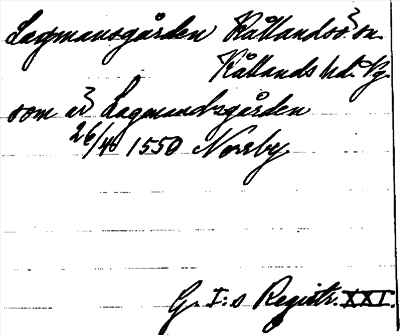 Lagmansgården Kållandsö sn.
Kållands hd. Vg
som är Lagmansgården
26/4 1550 Norrby
G. I:s Registr. XXI.